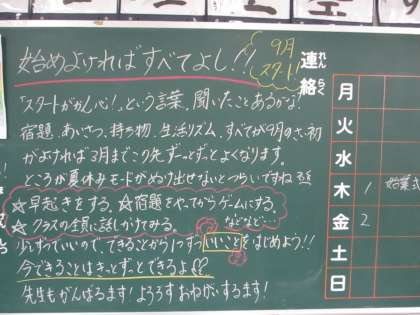 始めよければすべてよし!!
9月スタート!
「スタートがかん心!」という言葉、聞いたことあるかな?
宿題、あいさつ、持ち物、生活リズム、すべてが9月のさい初
がよければ3月までこの先ずーっとずーっとよくなります。
ところが夏休みモードがぬけ出せないとつらいですね
☆早起きをする。☆宿題をやってからゲームにする。
☆クラスの全員に話しかけてみる。 などなど…
少しずつでいいので、できることから1つずついいことをはじめよう!!
今できることはきっとずっとできるよ
先生もがんばります!よろしくおねがいします!
連絡
れんらく
月
火
水
木 1 始業式
金 2
土
日